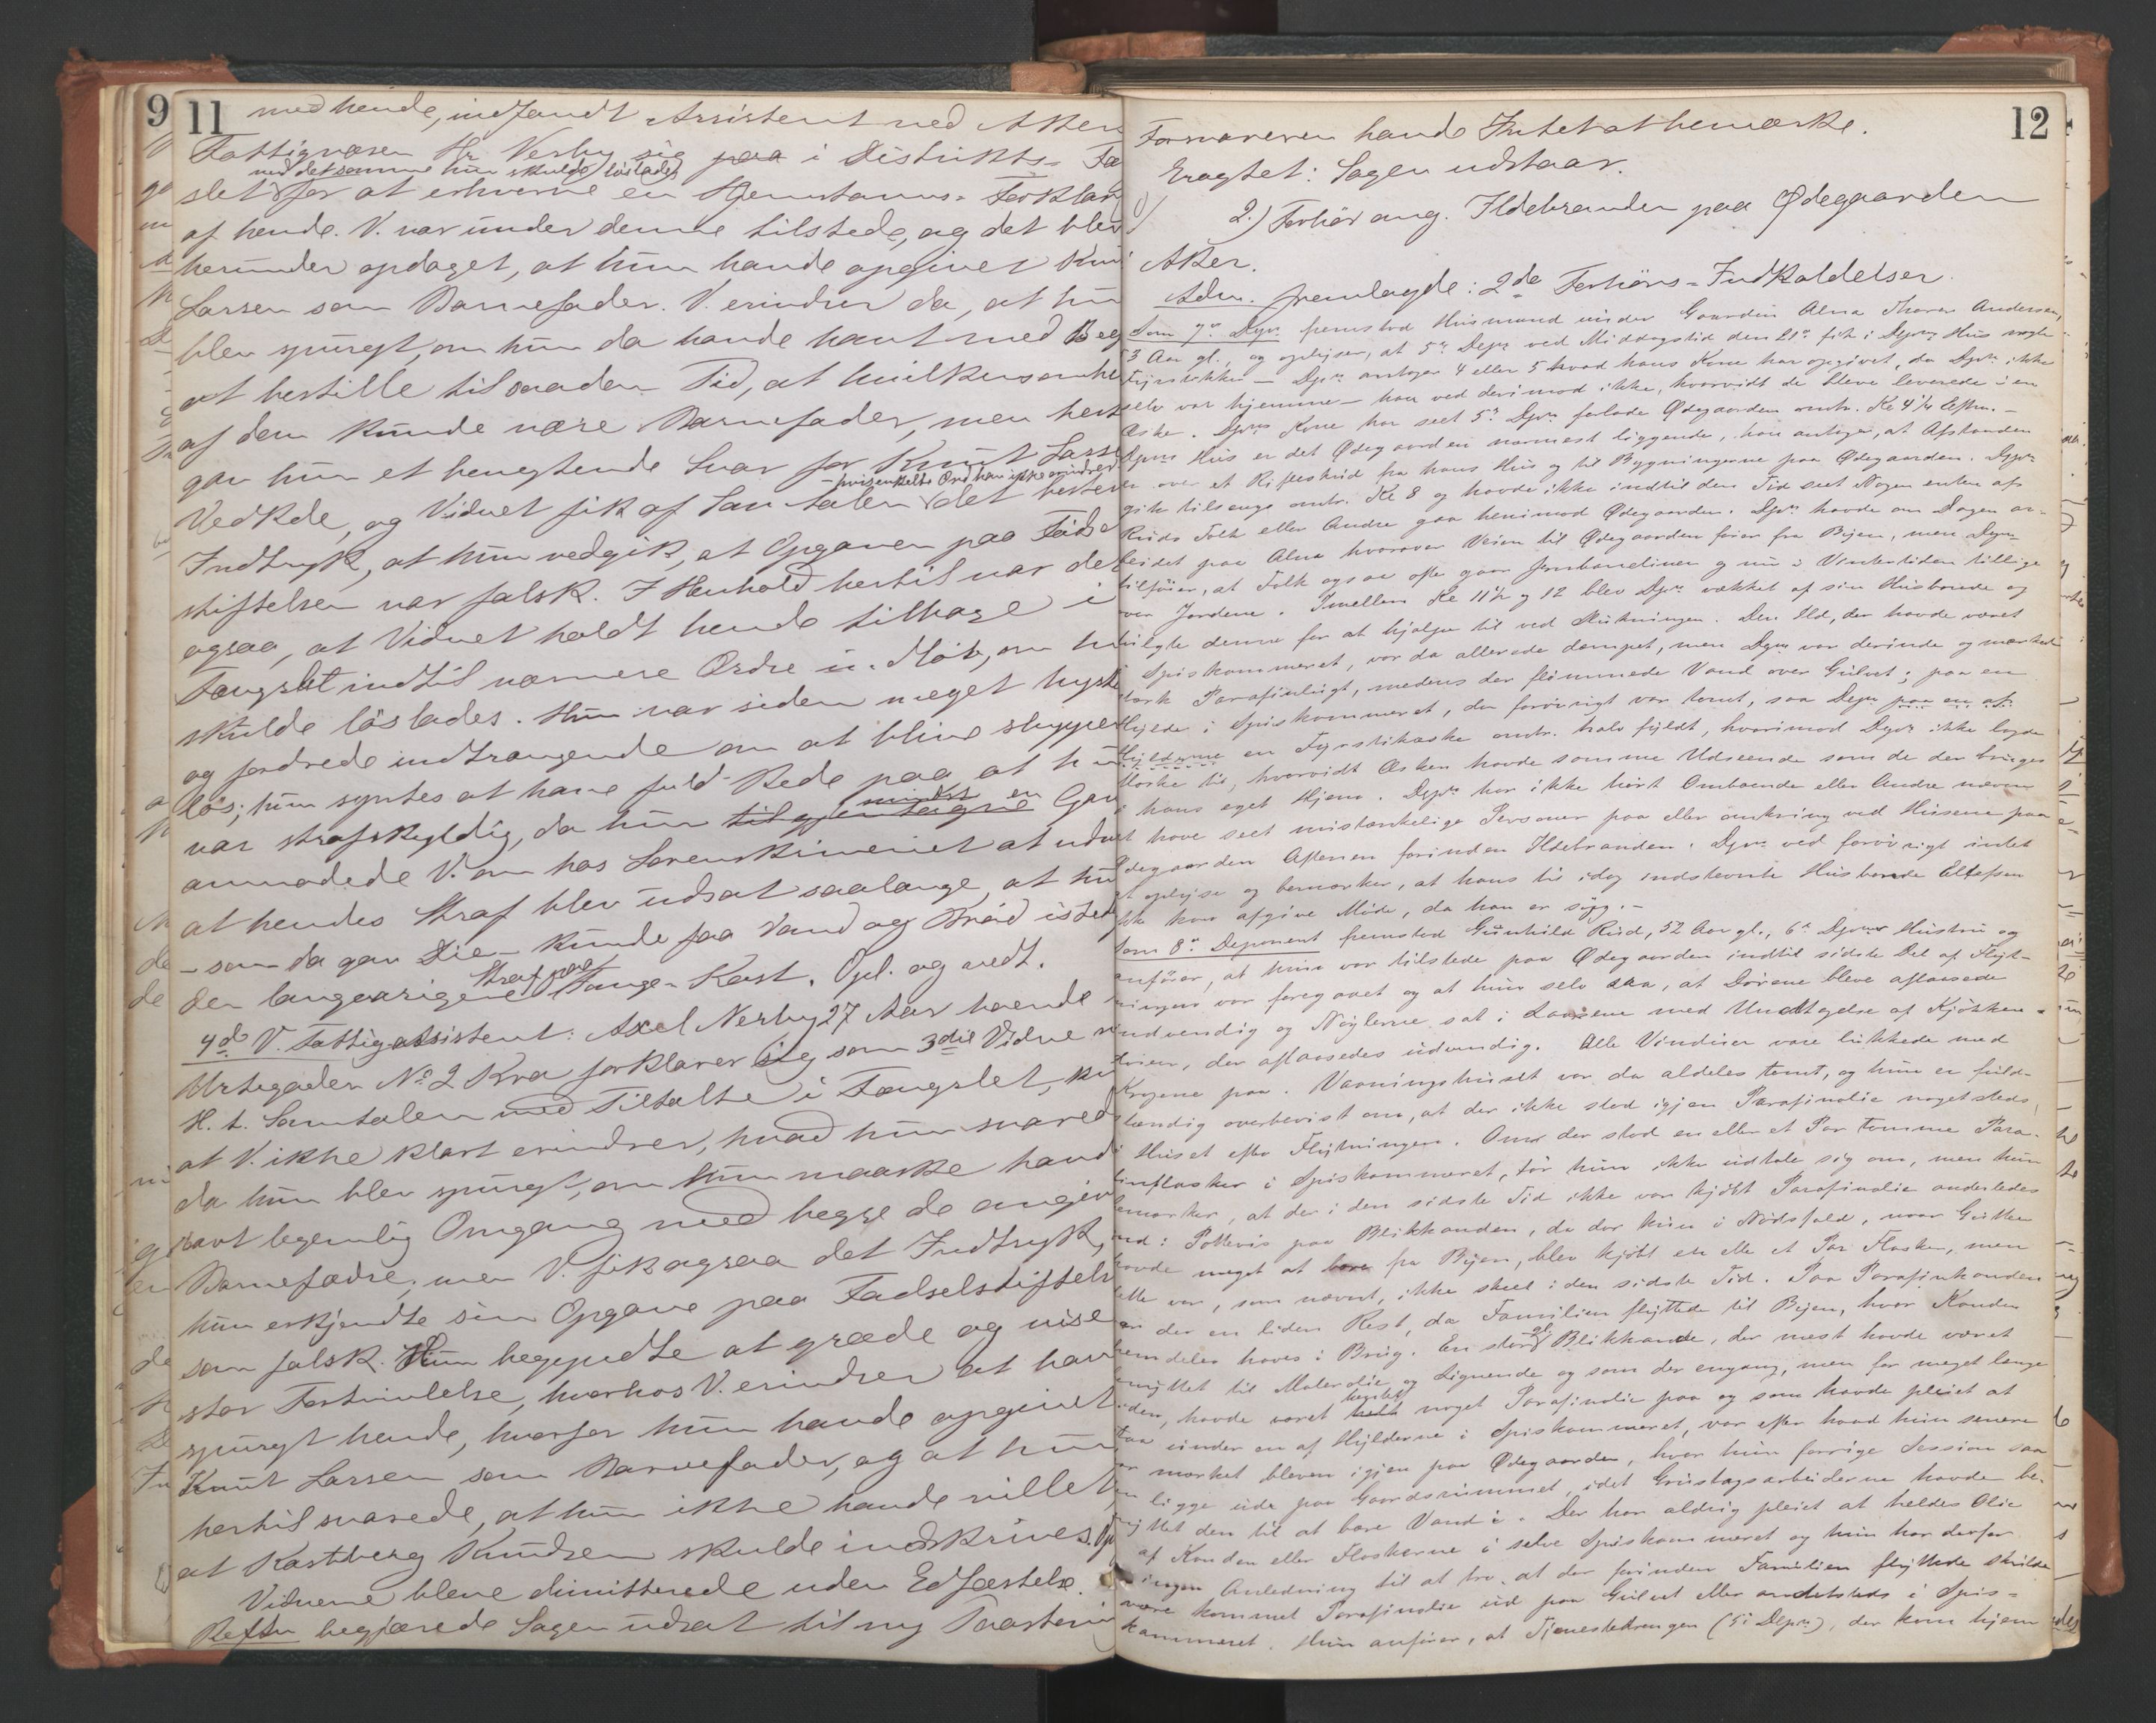 9
11
med hende, indfandt Assistent ved Akers
Fattigvæsen Hr Nerby sig paa i Distrikts-Fæ
ved det samme hun skulde løslades
slet for at erhverve en Hjemstavns-Forklar
af hende. V. var under denne tilstede, og det blev
herunder opdaget, at hun havde opgivet Knut
Larsen som Barnefader. V. erindrer da, at hun
blev spurgt, om hun da havde havt med Beg
at bestille til saadan Tid, at hvilkensomhe
af dem kunde være Barnefader, men hert
gav hun et benegtende Svar for Knut Larse
- hvis enkelte Ord han ikke erindrer
Vedkde, og Vidnet fik af Samtalen det bestem
Indtryk, at hun vedgik, at Opgaven paa Fødse
stiftelsen var falsk. I Henhold hertil var det
ogsaa, at Vidnet holdt hende tilbage i
Fængslet indtil nærmere Ordre i. Møte, om hun
skulde løslades. Hun var siden meget hyste
og fordrede indtrængende om at blive sluppet
løs; hun syntes at have fuld Rede paa, at hun
mindst en
var strafskyldig, da hun til gjentagne Gan
anmodede V. om hos Sorenskriveriet at udvi
at hendes Straf blev udsat saalænge, at hun
- som da gav Die - kunde faa Vand og Brød isted
Straf paa
den langvarigere Fange-Kost. Opl. og vedt.
4de V. Fattigassistent: Axel Nerby 27 Aar boende
Urtegaden No 2 Kra forklarer sig som 3die Vidne
H. t. Samtalen med Tiltalte i Fængslet, ku
at V. ikke klart erindrer, hvad hun svared
da hun blev spurgt, om hun maaske havd
havt legemlig Omgang med begge de angivn
Barnefædre, men V. fik ogsaa det Indtryk,
hun erkjendte sin Opgave paa Fødselsstiftels
som falsk. Hun begyndte at græde og vise
stor Fortvivlelse, hvorhos V. erindrer at have
spurgt hende, hvorfor hun havde opgivet
Knut Larsen som Barnefader, og at hun
hertil svarede, at hun ikke havde villet,
at Kastberg Knudsen skulde indskrives. Op
Vidnerne bleve dimitterede uden Edfæstelse.
Reftn begjærede Sagen udsat til ny Paastevn
12
Forsvareren havde Intet at bemærke.
Eragtet: Sagen udstaar.
2.) Forhör ang. Ildebranden paa Ødegaarden
Aker.
Adm. fremlagde: 2de Forhörs-Indkaldelser.
Som 7de Dep. fremstod Husmand under Gaarden Alna Thorer Andersen,
3 Aar gl., og oplyser, at 5te Depn ved Middagstid den 21de fik i Depns Hus nogle
Fyrstikker - Depn antager 4 eller 5 hvad hans Kone har opgivet, da Depn ikke
selv var hjemme - han ved derimod ikke, hvorvidt de bleve leverede i en
Æske. Depns Kone har seet 5te Depn forlade Ødegaarden omtr. Kl 4 1/4 Eftm. -
Depns Hus er det Ødegaarden nærmest liggende, han antager, at Afstanden
er over et Rifleskud fra hans Hus og til Bygningerne paa Ødegaarden. Depn
gik tilsengs omtr. Kl 8 og havde ikke indtil den Tid seet Nogen enten af
Ruds Folk eller Andre gaa henimod Ødegaarden. Depn havde om Dagen ar-
beidet paa Alna hvorover Veien til Ødegaarden förer fra Byen, men Depn
tilföier, at Folk ogsaa ofte gaar Jernbanelinien og nu i Vintertiden tillige
over Jordene. Imellem Kl 11 1/2 og 12 blev Depn vækket af sin Husbonde og
fulgte denne for at hjælpe til ved Slukningen. Den Ild, der havde været
i Spiskammeret, var da allerede dæmpet, men Depn var derinde og mærkede
stærk Parafinlugt, medens der flömmede Vand over Gulvet; paa en
Hylde i Spiskammeret, der forövrigt var tomt, saa Depn paa en af
Hylderne en Fyrstikæske omtr. halv fyldt, hvorimod Depn ikke lagde
Mærke til, hvorvidt Æsken havde samme Udseende som de der bruges
i hans eget Hjem. Depn har ikke hört Omboende eller Andre nævne
at have seet mistænkelige Personer paa eller omkring ved Husene paa
Ødegaarden Aftenen forinden Ildebranden. Depn ved forövrigt intet
at oplyse og bemærker, at hans til idag indstevnte Husbonde Ellefsen
ikke kan afgive Möde, da han er syg. -
Som 8de Deponent fremstod Gunhild Rud, 52 Aar gl., 6te Depns Hustru og
anförer, at hun var tilstede paa Ødegaarden indtil sidste Del af Flyt-
ningen var foregaaet og at hun selv saa, at Dörene bleve aflaasede
indvendig og Nöglerne sat i Laasene med Undtagelse af Kjökken-
dören, der aflaasedes udvendig. Alle Vinduer vare lukkede med
Krogene paa. Vaaningshuset var da aldeles tomt, og hun er fuld-
stændig overbevist om, at der ikke stod igjen Parafinolie nogetsteds
i Huset efter Flytningen. Om der stod en eller et Par tomme Para-
finflasker i Spiskammeret, tör hun ikke udtale sig om, men hun
bemærker, at der i den sidste Tid ikke var kjöbt Parafinolie anderledes
end i Pottevis paa Blikkanden, da der kun i Nödsfald, naar Gutten
havde meget at bære fra Byen, blev kjöbt en eller et Par Flasker, men
dette var, som nævnt, ikke skeet i den sidste Tid. Paa Parafinkanden
var der en liden Rest, da Familien flyttede til Byen, hvor Kanden
fremdeles haves i Brug. En stor gl. Blikkande, der mest havde været
benyttet til Malerolie og Lignende og som der engang, men for meget længe
hentet
siden, havde været noget Parafinolie paa og som havde pleiet at
staa under en af Hylderne i Spiskammeret, var efter hvad hun senere
har mærket bleven igjen paa Ødegaarden, hvor hun forrige Session saa
den ligge ude paa Gaardsrummet, idet Grustagsarbeiderne havde be-
nyttet den til at bære Vand i. Der har aldrig pleiet at heldes Olie
af Kanden eller Flaskerne i selve Spiskammeret og hun har derfor
ingen Anledning til at tro, at der forinden Familien flyttede skulde
være kommet Parafinolie ud paa Gulvet eller andetsteds i Spis-
kammeret. Hun anförer, at Tjenestedrengen (5te Depn), der kom hjem